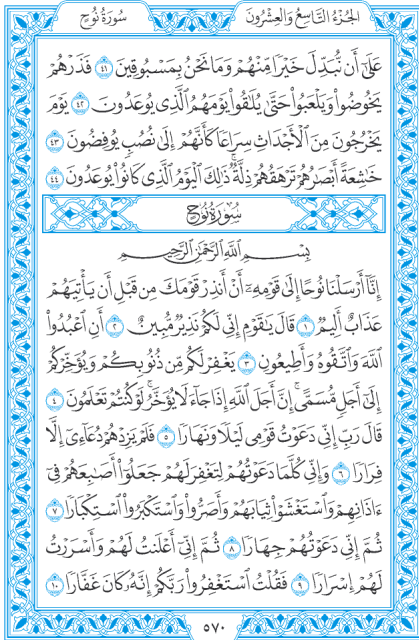 الجزء التاسع والعشرون
سورة نوح
عَلَىٰٓ أَن نُّبَدِّلَ خَيْرًا مِّنْهُمْ وَمَا نَحْنُ بِمَسْبُوقِينَ ٤١ فَذَرْهُمْ
يَخُوضُوا۟ وَيَلْعَبُوا۟ حَتَّىٰ يُلَٰقُوا۟ يَوْمَهُمُ ٱلَّذِى يُوعَدُونَ ٤٢ يَوْمَ
يَخْرُجُونَ مِنَ ٱلْأَجْدَاثِ سِرَاعًا كَأَنَّهُمْ إِلَىٰ نُصُبٍ يُوفِضُونَ ٤٣
خَٰشِعَةً أَبْصَٰرُهُمْ تَرْهَقُهُمْ ذِلَّةٌ ۚ ذَٰلِكَ ٱلْيَوْمُ ٱلَّذِى كَانُوا۟ يُوعَدُونَ ٤٤
سورة نوح
بِسْمِ ٱللَّهِ ٱلرَّحْمَٰنِ ٱلرَّحِيمِ
إِنَّآ أَرْسَلْنَا نُوحًا إِلَىٰ قَوْمِهِۦٓ أَنْ أَنذِرْ قَوْمَكَ مِن قَبْلِ أَن يَأْتِيَهُمْ
عَذَابٌ أَلِيمٌ ١ قَالَ يَٰقَوْمِ إِنِّى لَكُمْ نَذِيرٌ مُّبِينٌ ٢ أَنِ ٱعْبُدُوا۟
ٱللَّهَ وَٱتَّقُوهُ وَأَطِيعُونِ ٣ يَغْفِرْ لَكُم مِّن ذُنُوبِكُمْ وَيُؤَخِّرْكُمْ
إِلَىٰٓ أَجَلٍ مُّسَمًّى ۚ إِنَّ أَجَلَ ٱللَّهِ إِذَا جَآءَ لَا يُؤَخَّرُ ۖ لَوْ كُنتُمْ تَعْلَمُونَ ٤
قَالَ رَبِّ إِنِّى دَعَوْتُ قَوْمِى لَيْلًا وَنَهَارًا ٥ فَلَمْ يَزِدْهُمْ دُعَآءِىٓ إِلَّا
فِرَارًا ٦ وَإِنِّى كُلَّمَا دَعَوْتُهُمْ لِتَغْفِرَ لَهُمْ جَعَلُوٓا۟ أَصَٰبِعَهُمْ فِىٓ
ءَاذَانِهِمْ وَٱسْتَغْشَوْا۟ ثِيَابَهُمْ وَأَصَرُّوا۟ وَٱسْتَكْبَرُوا۟ ٱسْتِكْبَارًا ٧
ثُمَّ إِنِّى دَعَوْتُهُمْ جِهَارًا ٨ ثُمَّ إِنِّىٓ أَعْلَنتُ لَهُمْ وَأَسْرَرْتُ
لَهُمْ إِسْرَارًا ٩ فَقُلْتُ ٱسْتَغْفِرُوا۟ رَبَّكُمْ إِنَّهُۥ كَانَ غَفَّارًا ١٠
٥٧٠